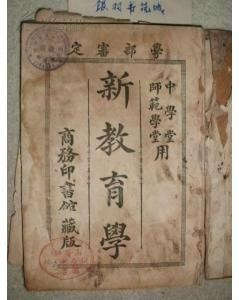 學部審定
中學堂
師範學堂
用
新教育學
商務印書館藏版